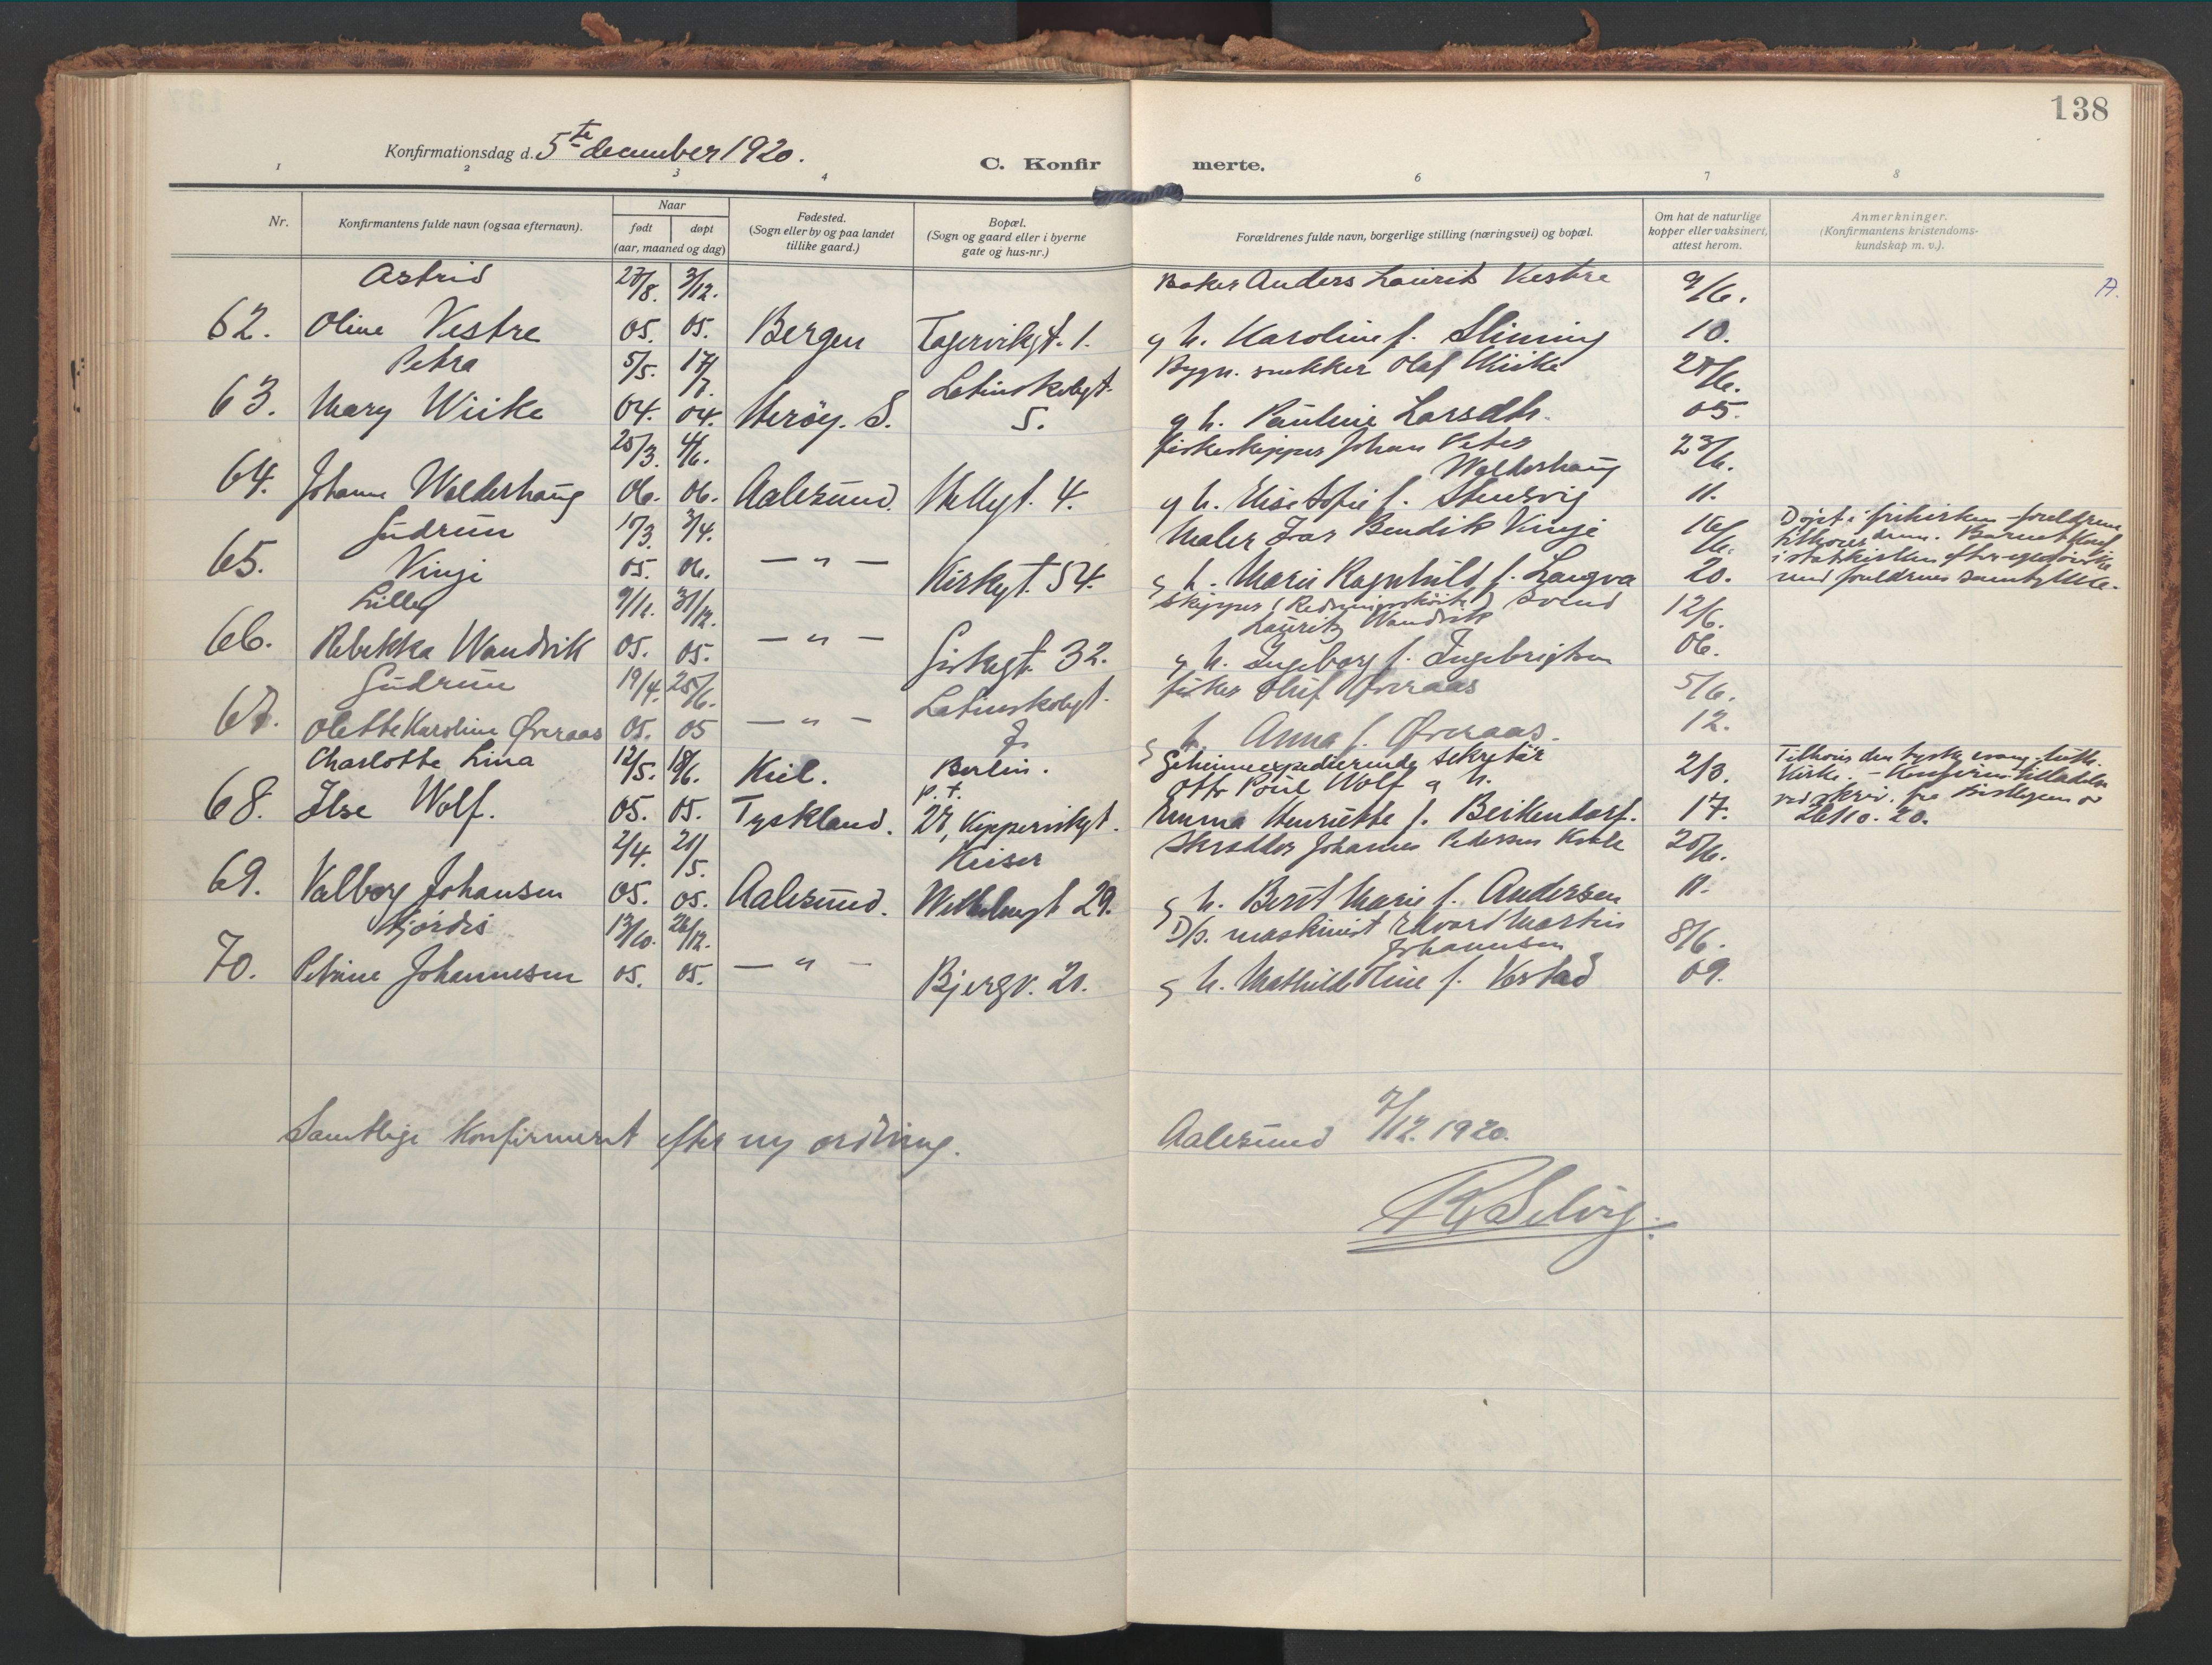 138
Konfirmationsdag d. 5te december 1920.
C. Konfirmerte.
1 2 3 4 6 7 8
Nr.
Konfirmantens fulde navn (ogsaa efternavn).
Naar
født døpt
(aar, maaned og dag)
Fødested.
(Sogn eller by og paa landet
tillike gaard.)
Bopæl.
(Sogn og gaard eller i byerne
gate og hus-nr.)
Forældrenes fulde navn, borgerlige stilling (næringsvei) og bopæl.
Om hat de naturlige
kopper eller vaksinert,
attest herom.
Anmerkninger.
(Konfirmantens kristendoms-
kundskap m. v.).
Astrid 27/8. 3/12. Baker Anders Laurits Vestre 9/6. A.
62. Oline Vestre 05. 05. Bergen 1. g h. Karoline f. Slinning 10.
Petra 5/5. 17/7. Latinskolegt. Bygn. snekker Olaf Wiike
63. Mary Wiike 04. 04. Herøy. S. 5. g h. Pauline Larsdtr. 05.
25/3. 4/6. fiskeskipper Johan Peter 23/6.
Walderhaug
64. Johanne Walderhaug 06. 06. Aalesund. 4. g h. Elise Sofie f. Stensvig 11.
Gudrun 17/3. 3/4. Maler Ivar Bendik Vinje 16/6. Døpt i frikirken - forældrene
tilhører denne. Barnet konf.
65. Vinje 05. 06. — " — Kirkegt. 54. g h. Marie Ragnhild f. Langva 20. i statskirken efter eget ønske
med forældrenes samtykke.
Lilly 9/11. 31/12. Skipper (Redningsskøite) Svend 12/6.
Lauritz Wandvik
66. Rebekka Wandvik 05. 05. — " — 32. g h. Ingeborg f. Ingebrigtsen 06.
Gudrun 19/4. 25/6. Latinskolegt. fisker Oluf Øveraas 5/6.
67. Olette Karoline Øveraas 05. 05 — " — 7. g h. Anna f. Øveraas. 12.
Charlotte Lina 12/5. 18/6. Kiel. Berlin. Geheimeexpedierende Sekretär 2/3. Tilhører den tysk evang. luth.
p. t. Otto Paul Wolf g h. kirke. -
68. Ilse Wolf. 05. 05. Tyskland. 27, Kippervikgt. Emma Henriette f. Beikendorf. 17. ved skriv. fra av
26.10. 20.
2/4. 21/5. Keiser Skrædder Johannes Pedersen
69. Valborg Johansen 05. 05. Aalesund. Wilhelmsgt 29. g h. Berit Marie f. Andersen 11.
Hjørdis 13/10. 26/12. D/s. maskinist Edvard Martin 8/6.
Johannesen
70. Petrine Johannesen 05. 05. — " — Bjergv. 21. g h. Mathilde Oline f. Vestad 09.
Samtlige konfirmert efter ny ordning.
Aalesund 7/12. 1920.